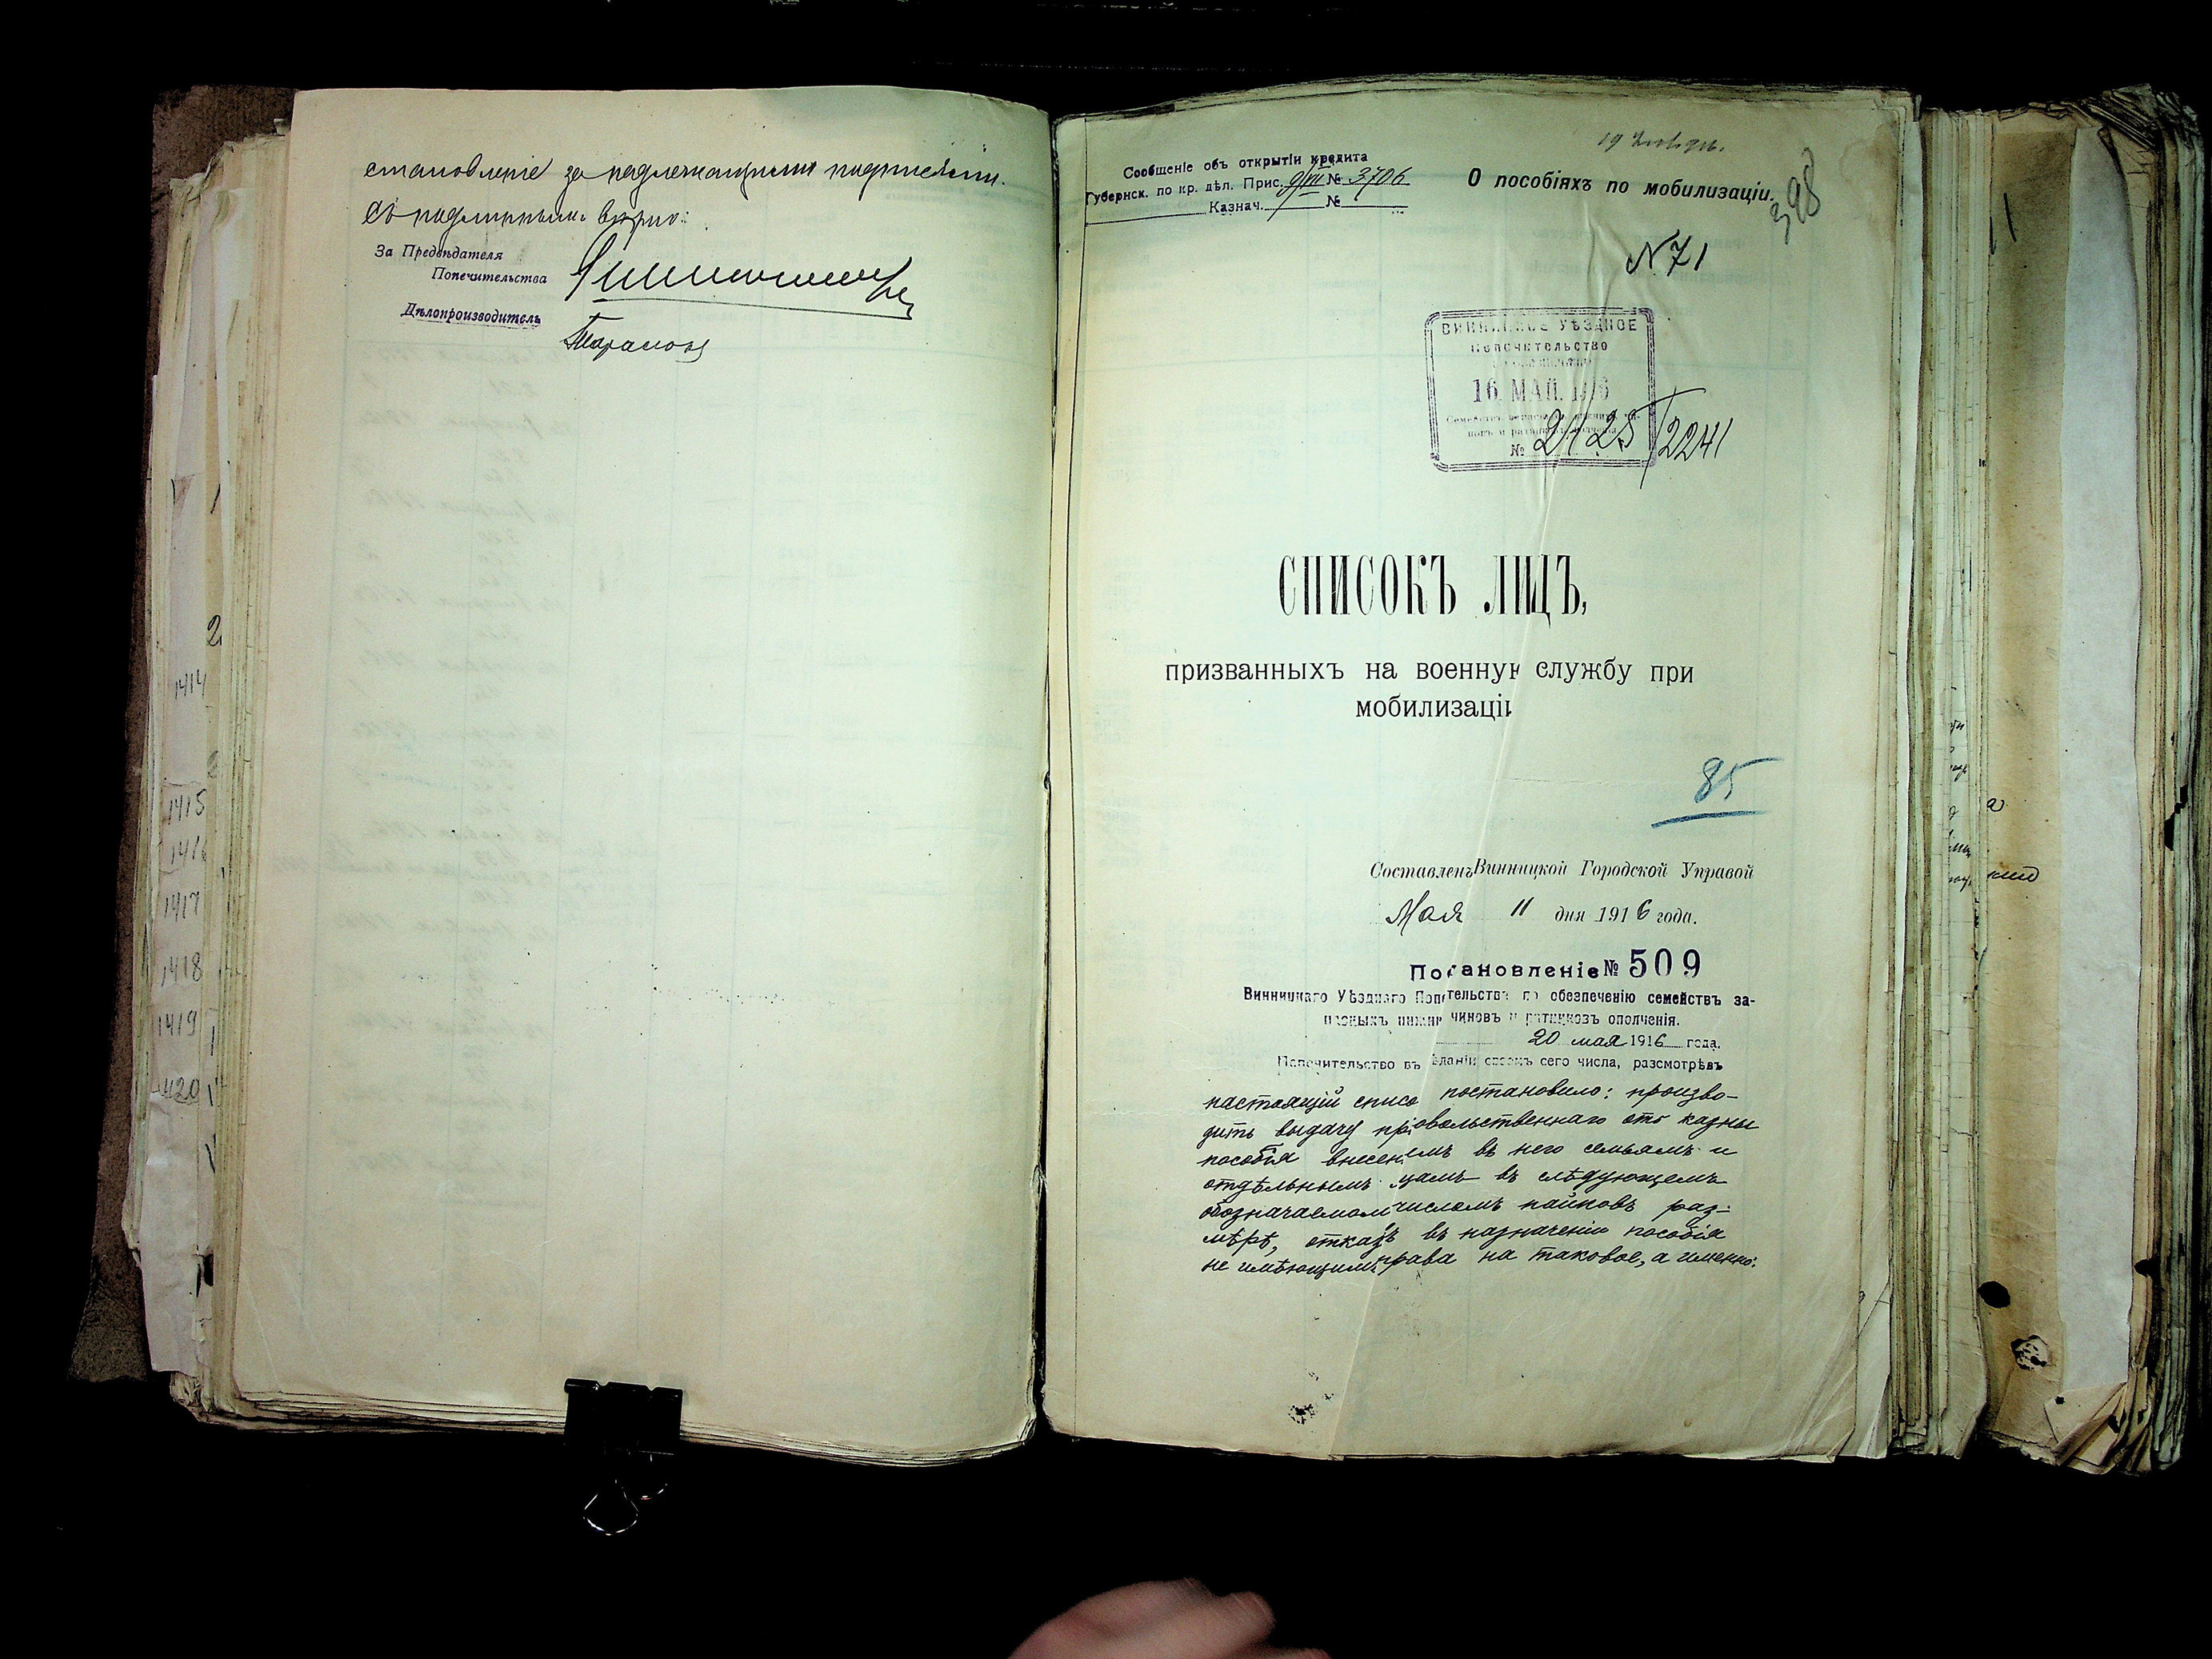 становленіе за надлежащими подписями.
Съ подлиннымъ вѣрно:
За Предсѣдателя
Попечительства
Дѣлопроизводитель
1414
1415
1416
1417
1418
1419
1420
Сообщеніе объ открытіи кредита
Губернск. по кр. дѣл. Прис. 9/VII № 3706
Казнач. №
О пособіяхъ по мобилизаціи.
398
N 71
ВИННИЦКОЕ УѢЗДНОЕ
ПОПЕЧИТЕЛЬСТВО
16 МАЙ 1916
№ 2125/2241
СПИСОКЪ ЛИЦЪ,
призванныхъ на военную службу при
мобилизаціи
85
Составленъ Винницкой Городской Управой
Мая 11 дня 1916 года.
Постановленіе № 509
Винницкаго Уѣзднаго Попечительства по обезпеченію семействъ за-
пасныхъ нижнихъ чиновъ и ратниковъ ополченія.
20 мая 1916 года.
Попечительство въ засѣданіи своемъ сего числа, разсмотрѣвъ
настоящій списо постановило: произво-
дить выдачу продовольственнаго отъ казны
пособія внесеннымъ въ него семьямъ и
отдѣльнымъ лицамъ въ слѣдующемъ
обозначаемомъ числомъ пайковъ раз-
мѣрѣ, отказавъ въ назначеніи пособія
не имѣющимъ права на таковое, а именно: